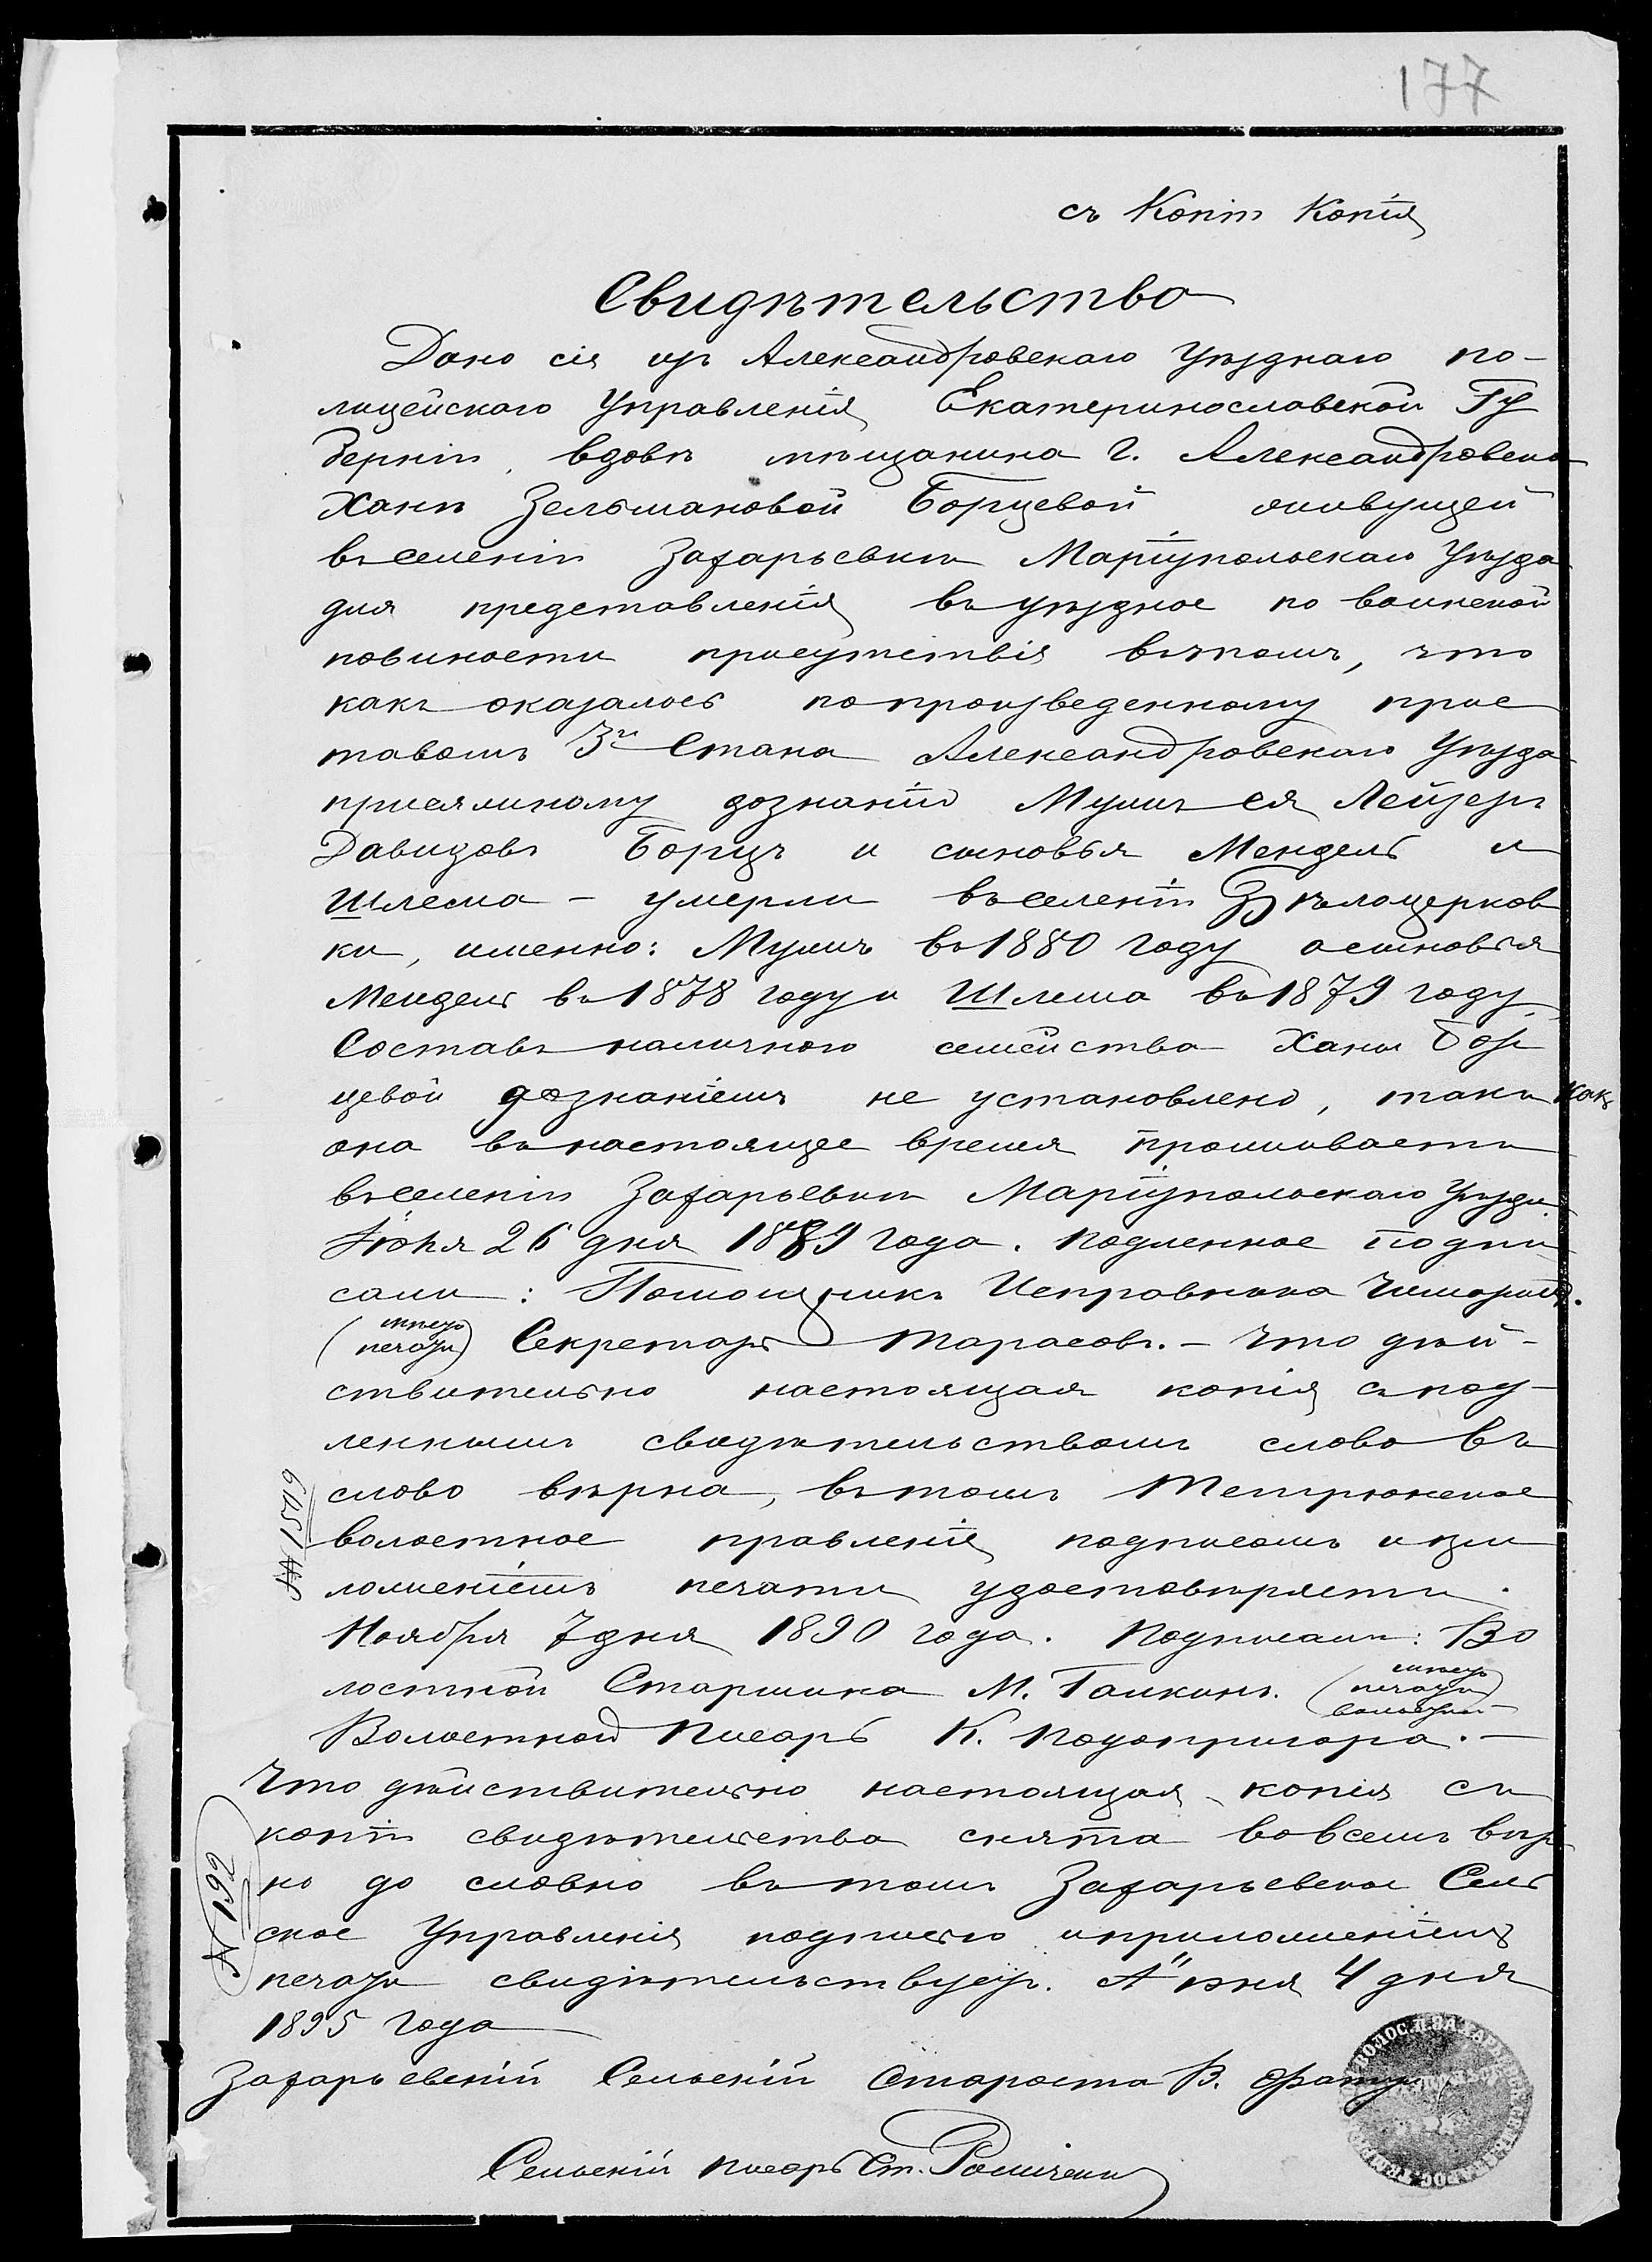 177
съ Копіи Копія
Свидѣтельство
Дано сія изъ Александровскаго Уѣзднаго по-
лицейскаго Управленія Екатеринославской Гу
берніи, вдовѣ мѣщанина г. Александровска
Ханѣ Зельмановой Борцевой живущей
въ селеніи Захарьевкѣ Маріупольскаго Уѣзда
для представленія въ уѣздное по воинской
повиности присутствія въ томъ, что
какъ оказалось по произведенному прис
тавомъ 3го Стана Александровскаго Уѣзда
присяжному дознанію Мужъ ея Лейзеръ
Давидовъ Борцъ и сыновья Мендель и
Шлема - умерли въ селеніи Бѣлоцерков
ки, именно: Мужъ въ 1880 году а сыновья
Мендель въ 1878 году и Шлема въ 1879 году,
Составъ наличнаго семейства Ханы Бор
цевой дознаніемъ не установлено, такъ какъ
она въ настоящее время проживаетъ
въ селеніи Захарьевкѣ Маріупольскаго Уѣзда.
Іюня 26 дня 1889 года. Подленное подпи
сали: Помощникъ Исправника
(мѣсто печати) Секретарь Тарасовъ. - Что дѣй-
ствительно настоящая копія съ под-
леннымъ свидѣтельствомъ слово въ
слово вѣрна, въ томъ Темрюкское
волостное правленія подписомъ и при
ложеніемъ печати удостовѣряетъ.
№ 1509
Ноября 7 дня 1890 года. Подписали: Во
лостной Старшина М. Галкинъ. (мѣсто печати волостной)
Волостной Писарь К. Подопригора. -
Что дѣйствительно настоящая копія съ
копіи свидѣтельства снята вовсемъ вѣр
но до словно въ томъ Захарьевское Сель
ское Управленія подписью и приложеніемъ
печати свидѣтельствуетъ. Іюня 4 дня
1895 года
№ 192
Захарьевскій Сельскій Староста В.
Сельскій писарь Ст.